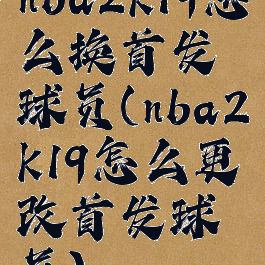 nba2k19怎
么换首发
球员(nba2
k19怎么更
改首发球
员)